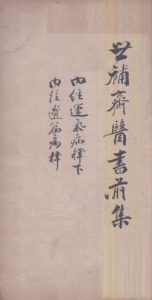 世補齋醫書前集
內經運氣病釋下
內經遺篇病釋